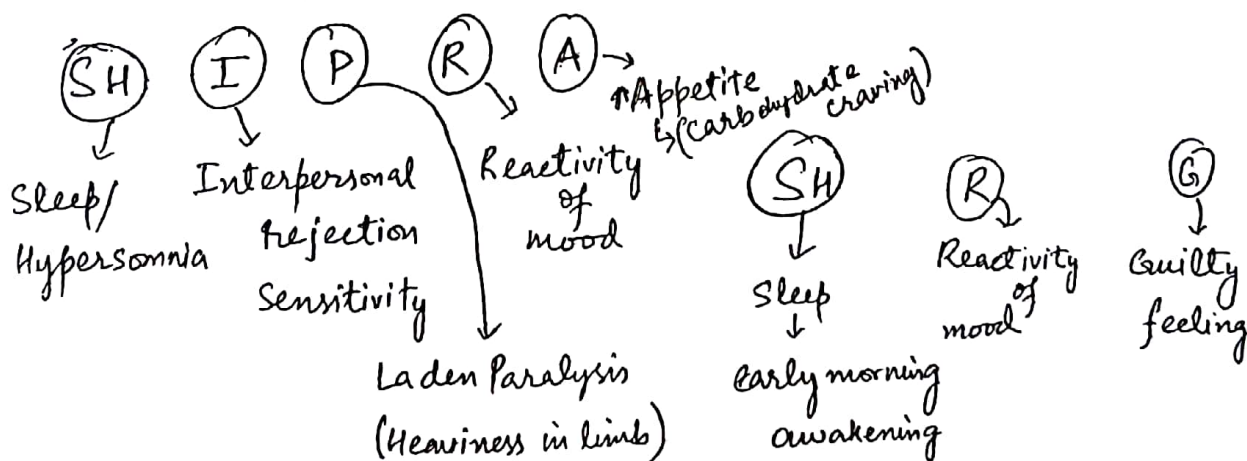 SH I P R A
↑Appetite
↳(Carbohydrate craving)
Sleep/
Hypersomnia
Interpersonal
rejection
Sensitivity
Reactivity
of
mood
Laden Paralysis
(Heaviness in limb)
SH R G
Sleep
early morning
awakening
Reactivity
of
mood
Guilty
feeling